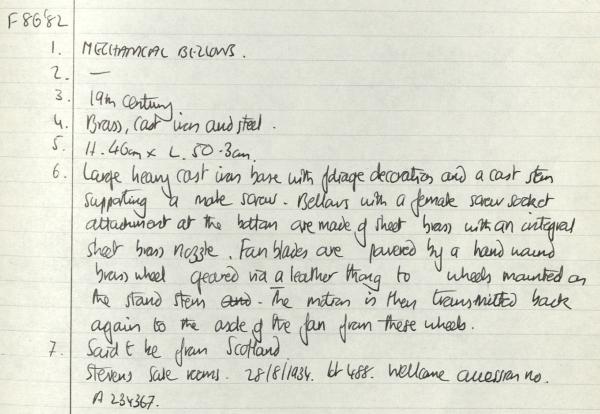 F8682
1. MECHANICAL BELLOWS.
2. —
3. 19th century
4. Brass, cast iron and steel.
5. H. 46cm x L. 50.3cm.
6. Large heavy cast iron base with foliage decoration and a cast stem
supporting a male screw. Bellows with a female screw socket
attachment at the bottom are made of sheet brass with an integral
sheet brass nozzle. Fan blades are powered by a hand wound
brass wheel geared via a leather thong to wheels mounted on
the stand stem and. The motion is then transmitted back
again to the axle of the fan from these wheels.
7. Said t be from Scotland
Stevens sale rooms. 28/8/1934. lot 488. Wellcome accession no.
A 234367.